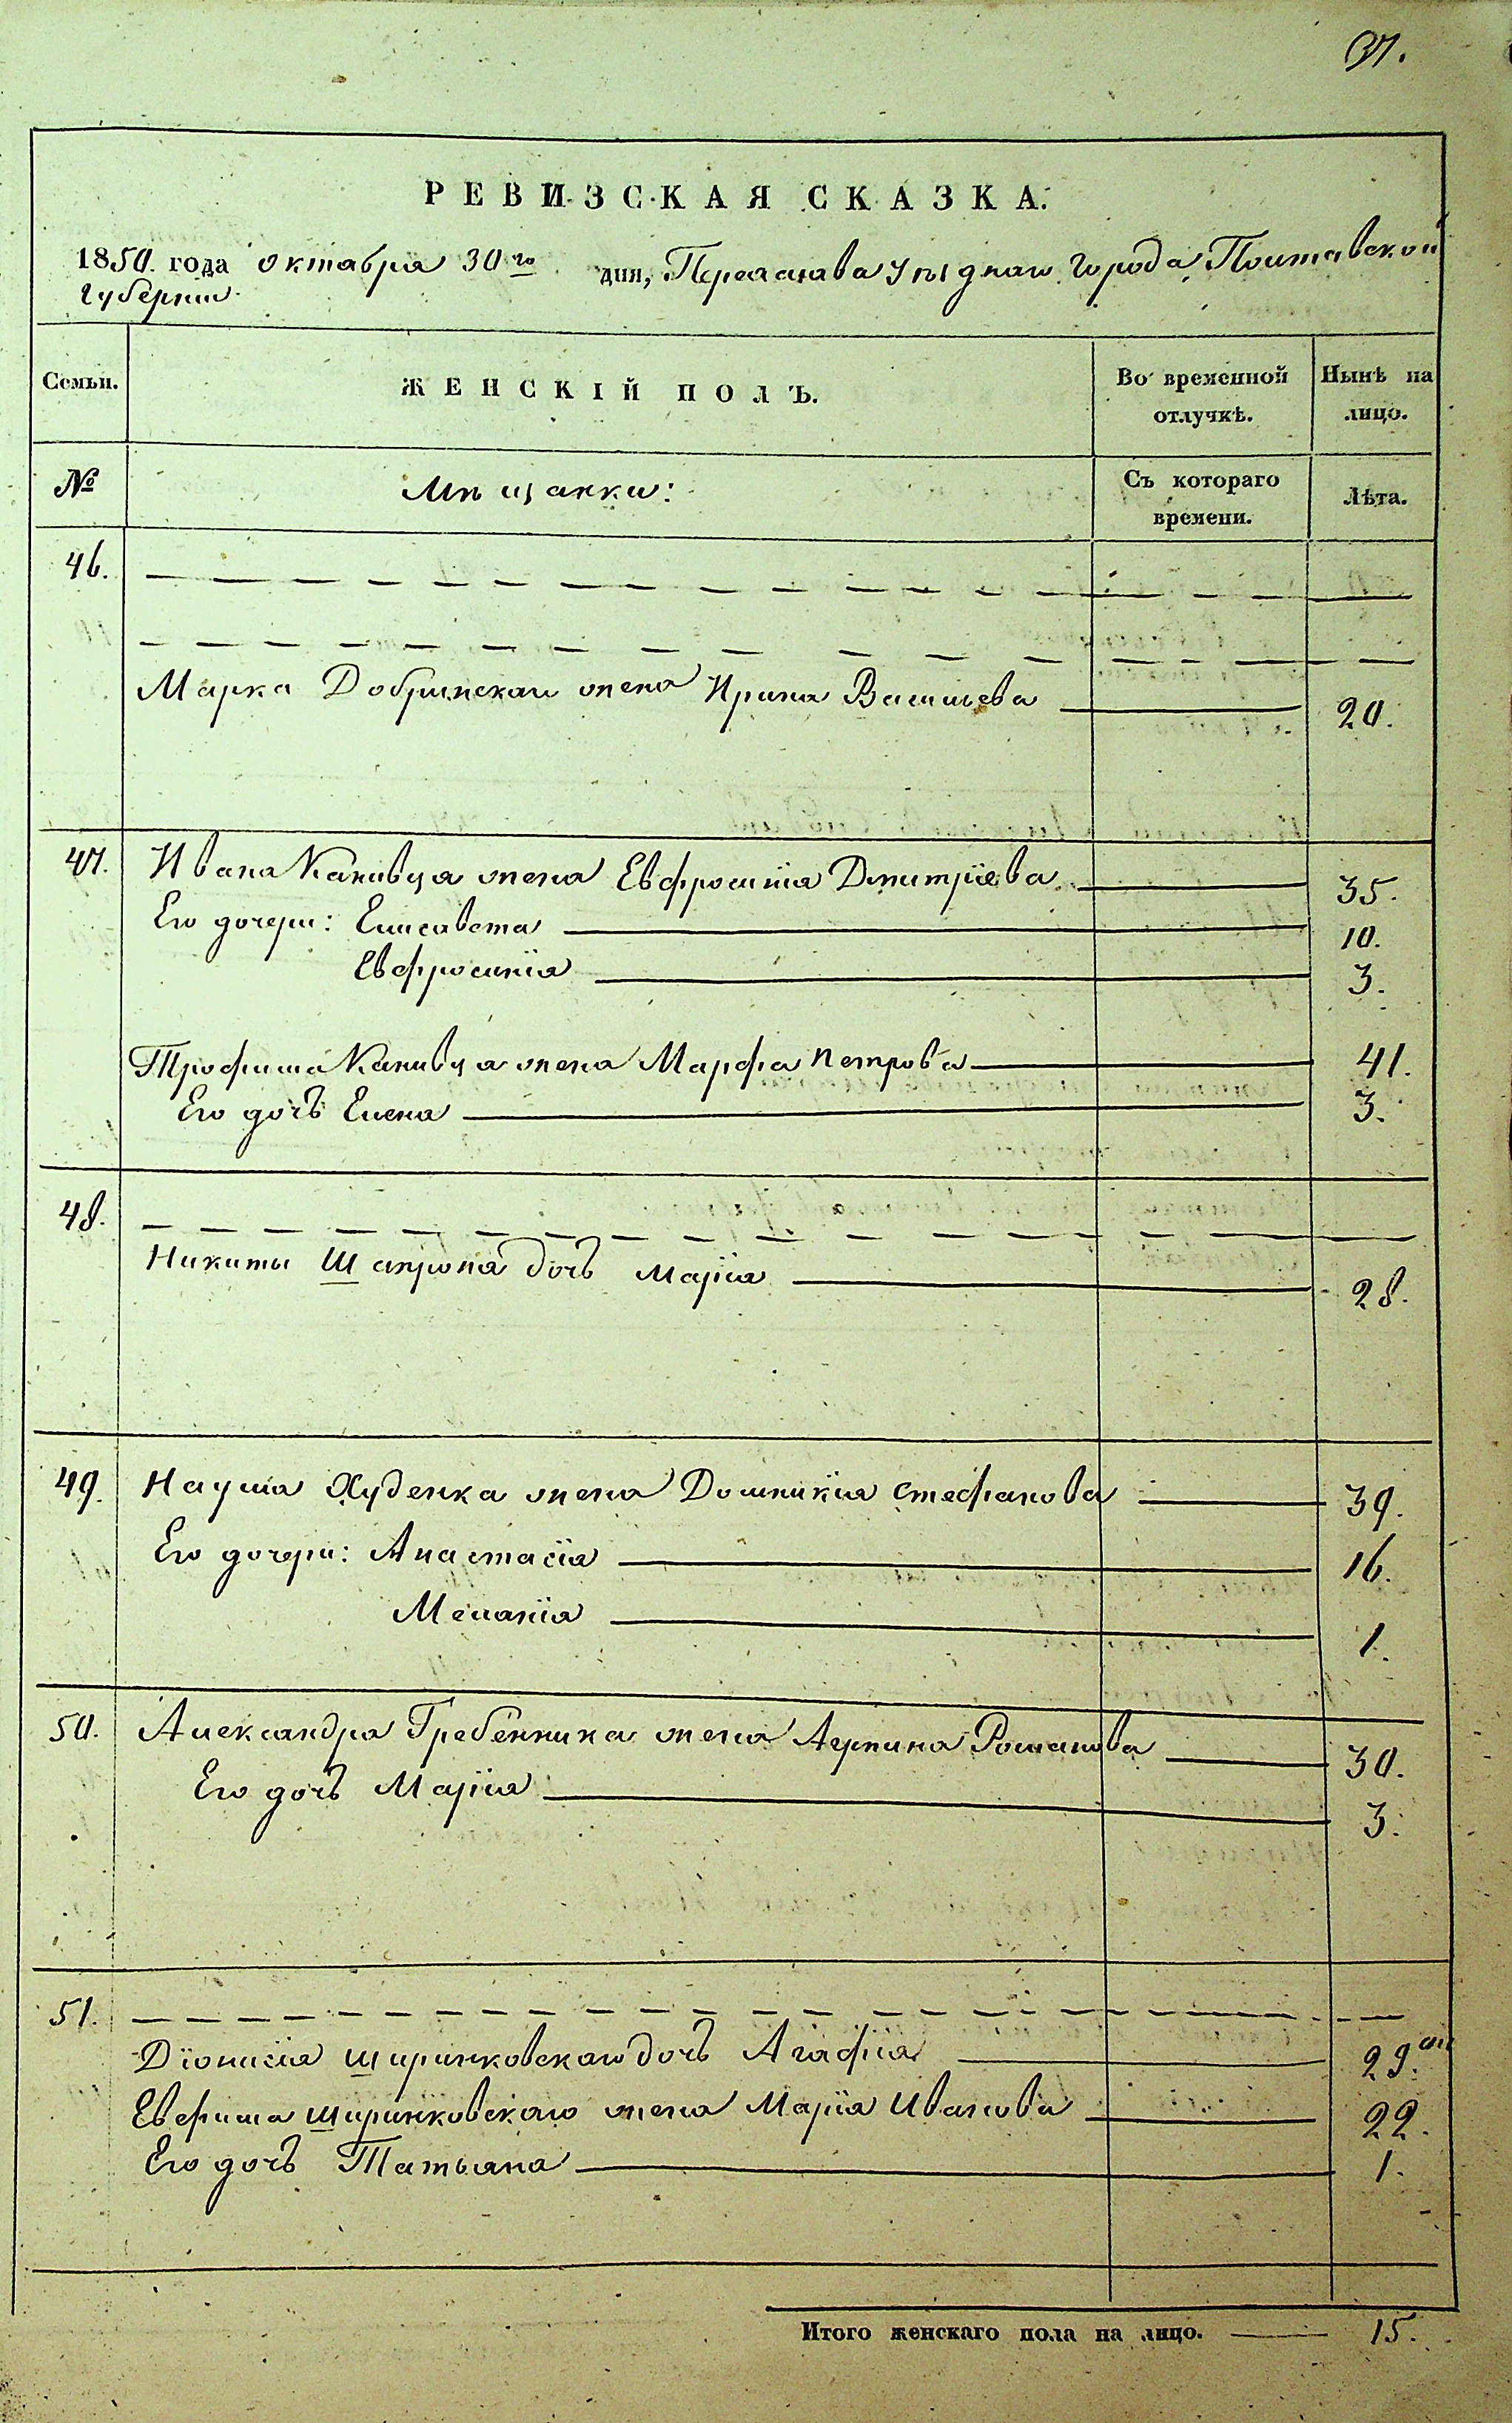 37.
РЕВИЗСКАЯ СКАЗКА.
1850. года октабря 30го дня, Переаслава уѣзднаго города, Полтавской
губернии.
Семьи.
ЖЕНСКІЙ ПОЛЪ.
Во временной отлучкѣ.
Нынѣ на лицо.
№
Мѣщанки:
Съ котораго времени.
Лѣта.
46.
Марка Добринскаго жена Ирина Васильева 20.
47. Ивана Канивца жена Евфросинія Дмитріева 35.
Его дочери: Елисавета 10.
Евфросинія 3.
Трофима Канивца жена Марфа Петрова 41.
Его дочь Елена 3.
48.
Никиты Шапрона дочь Марія 28.
49. Наума Худенка жена Домникія Стефанова 39.
Его дочери: Анастасія 16.
Меланія 1.
50. Александра Гребенника жена Агрпина Романова 30.
Его дочь Марія 3.
51.
Діонисія Ширинковскаго дочь Агафія 29.
Евфима Ширинковскаго жена Марія Иванова 22.
Его дочь Татьяна 1.
Итого женскаго пола на лицо. 15.